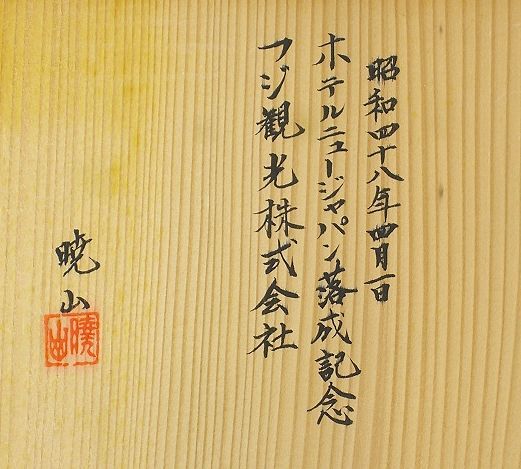 昭和四十八年四月一日
ホテルニュージャパン落成記念
フジ観光株式会社
暁山
暁山